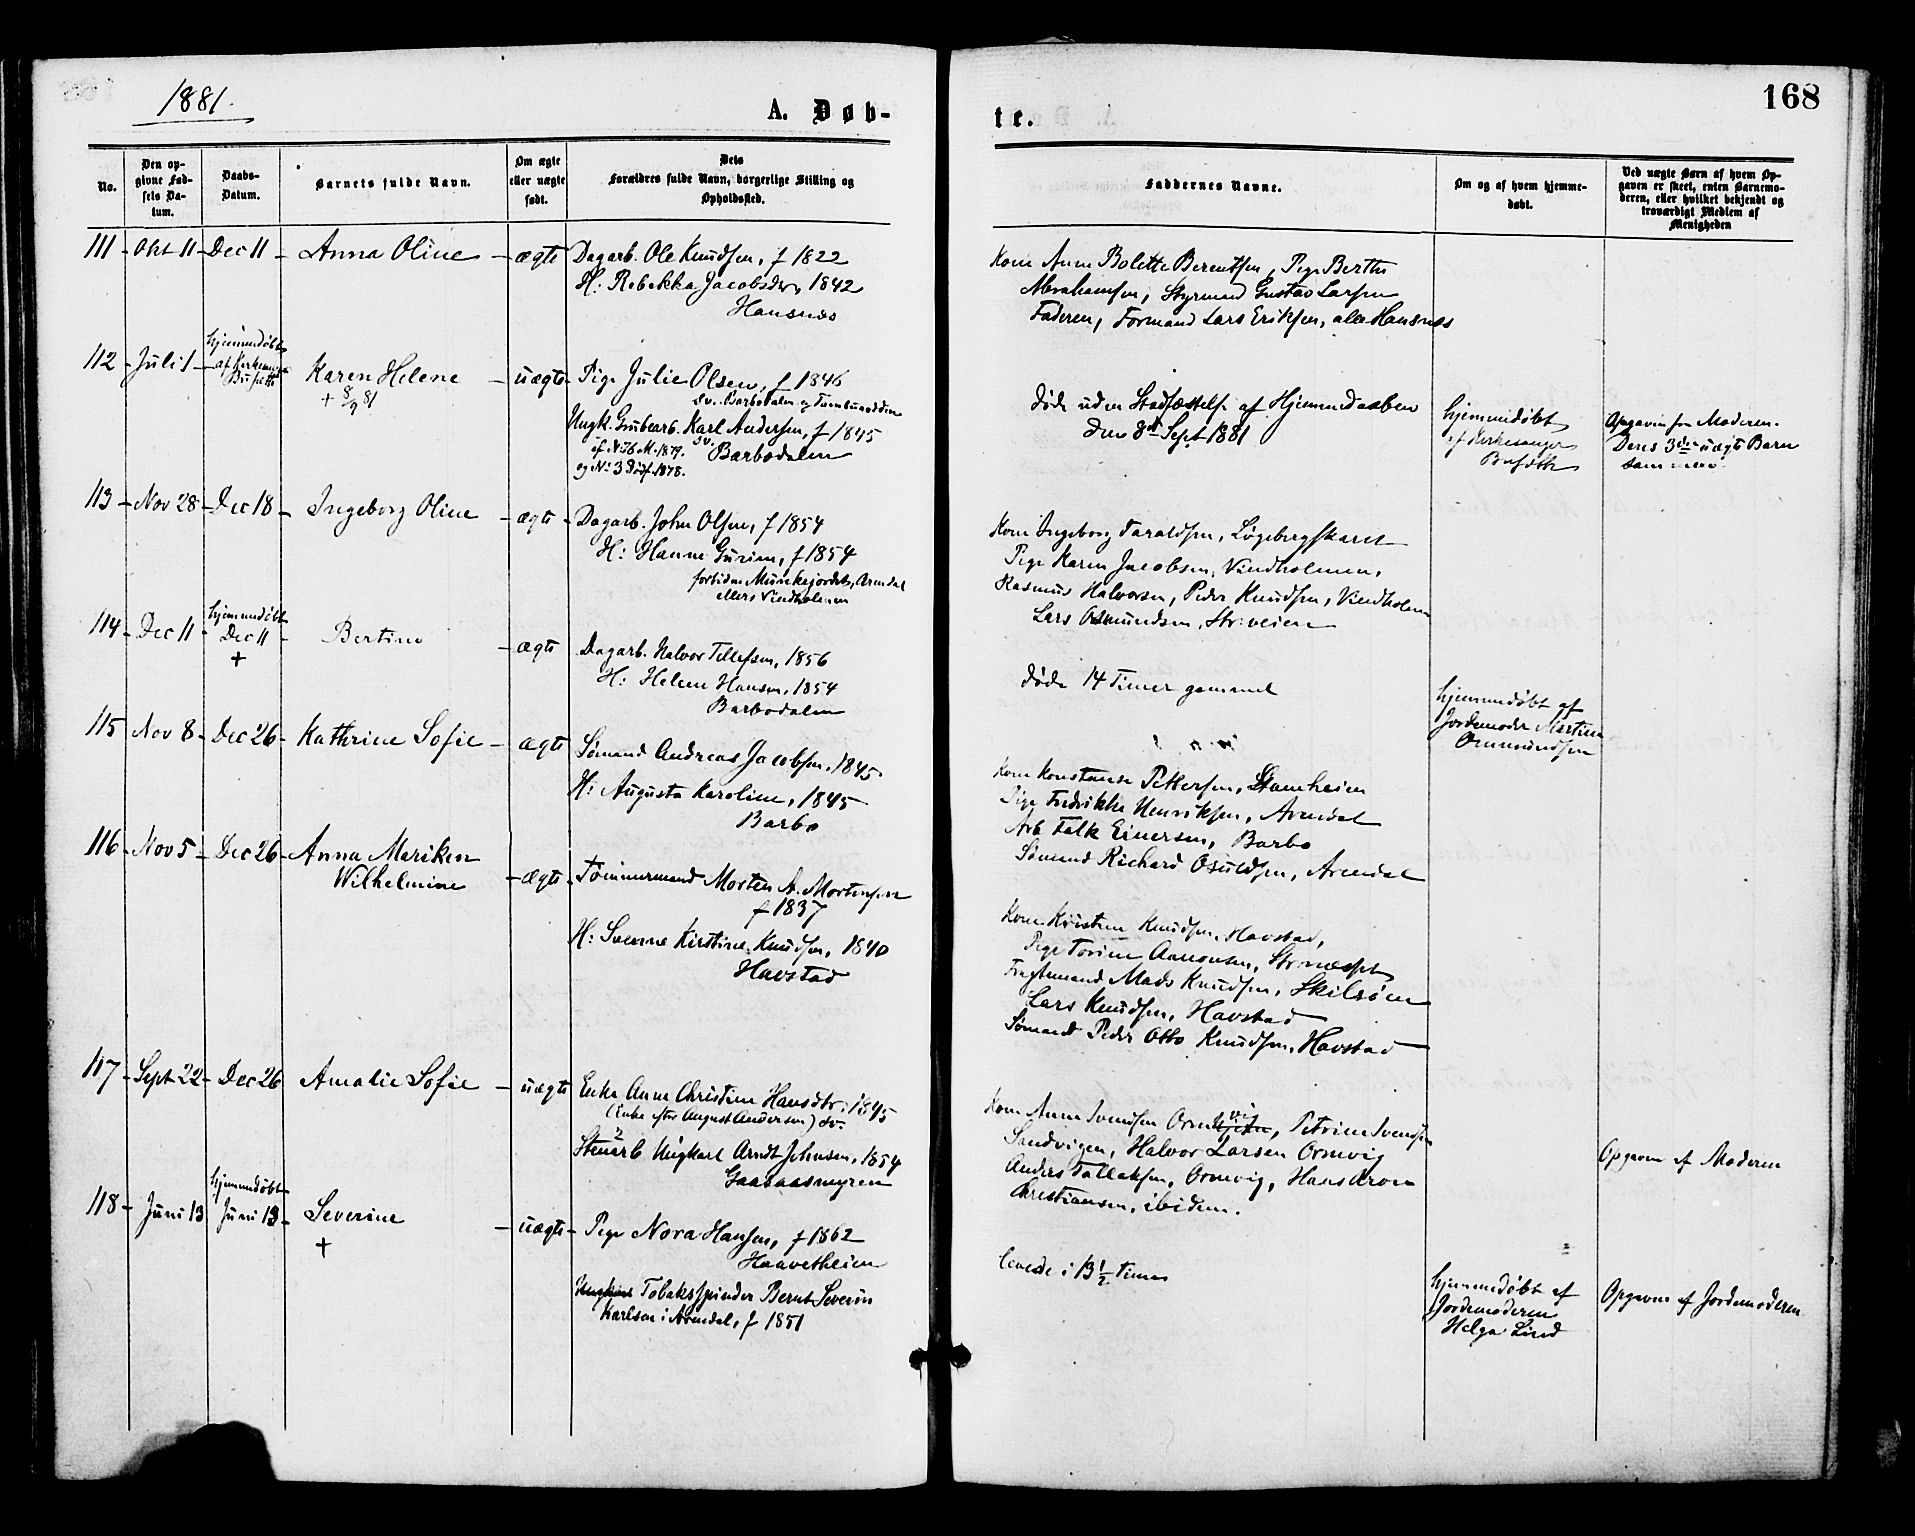 1881.
A. Døb-
te.
168
No.
Den op-
givne Fød-
sels Da-
tum.
Daabs-
Datum.
Barnets fulde Navn.
Om ægte
eller uægte
født.
Dets
Forældres fulde Navn, borgerlige Stilling og
Opholdssted.
Faddernes Navne.
Om og af hvem hjemme-
døbt.
Ved uægte Børn af hvem Op-
gaven er skeet, enten Barnemo-
deren, eller hvilket bekjendt og
troværdigt Medlem af
Menigheden
111 - Okt 11 - Dec 11 - Anna Oline - ægte
Dagarb. Ole Knudsen, f 1822
H: Rebekka Jacobsdr, 1842
Hansnæs
Kone Anne Bolette Berentsen, Pige Berthe
Abrahamsen, Styrmand Gustav Larsen
Faderen, Formand Lars Eriksen, alle Hansnæs
112 - Juli 1 -
hjemmedøbt
af Kirkesanger
Karen Helene
+ 8/9 81
- uægte -
Pige Julie Olsen, f 1846
sv. Barbodalen og
Ungk. Grubearb. Karl Andersen, f 1845
cf N: 76 M. 1879. sv. Barbodalen
og N: 3 Døbf. 1878.
døde uden Stadfæstelse af Hjemmedaaben
den 8de Sept 1881
hjemmedøbt
af Kirkesanger
Opgaven fra Moderen.
Deres 3die uægte Barn
sammen.
113 - Nov 28 - Dec 18 - Ingeborg Oline - ægte -
Dagarb. John Olsen, f 1854
H: Hanne Gurine, f 1854
fortiden Munkejordet, Arendal
ellers Vindholmen
Kone Ingeborg Taraldsen, Løgebergskaret
Pige Karen Jacobsen, Vindholmen,
Rasmus Halvorsen, Peder Knudsen, Vindholmen
Lars Osmundsen, Str:veien
114 - Dec 11 -
hjemmedøbt
Dec 11 -
+
Bertine
- ægte
Dagarb. Halvor Tellefsen, 1856
H: Helene Hansen, 1854
Barbodalen
døde 14 Timer gammel
hjemmedøbt af
Jordemoder Martine
Ommundsen
115 - Nov 8 - Dec 26 - Kathrine Sofie - ægte
Sømand Andreas Jacobsen, 1845
H: Augusta Karoline, 1845
Barbo
Kone Konstanse Pettersen,
Pige Fredrikke Henriksen, Arendal
Arb Falk Einersen, Barbo
Sømand Richard Osuldsen, Arendal
116 - Nov 5 - Dec 26 - Anna Mariken
Wilhelmine - ægte -
Tømmermand Morten A. Mortensen
f 1837
H: Severine Kirstine Knudsen, 1840
Havstad
Kone Kristine Knudsen, Havstad,
Pige Torine Aanonsen,
Fragtemand Mads Knudsen, Skilsøen
Lars Knudsen, Havstad
Sømand Peder Otto Knudsen, Havstad
117 - Sept 22 - Dec 26 Amalie Sofie - uægte
Enke Anne Christine Hansdtr: 1845
(Enke efter August Anderson) sv.
Ungkarl Arndt Johnsen, 1854
Gaasaasmyren
Kone Anne Svendsen Ormvig, Petrine Svendsen
Sandvigen, Halvor Larsen Ormvig
Anders Tallaksen, Ormvig, Hans Aron
Christiansen, ibidem.
Opgaven af Moderen
118 - Juni 13
hjemmedøbt
Juni 13 - Severine
+
- uægte -
Pige Nora Hansen, f 1862
Haavetheien
Ungkarl Tobaksspinder Bernt Severin
Karlsen i Arendal, f 1851
levede i 13 1/2 Times
hjemmedøbt af
Jordemoderen
Helga Lind
Opgaven af Jordemoderen